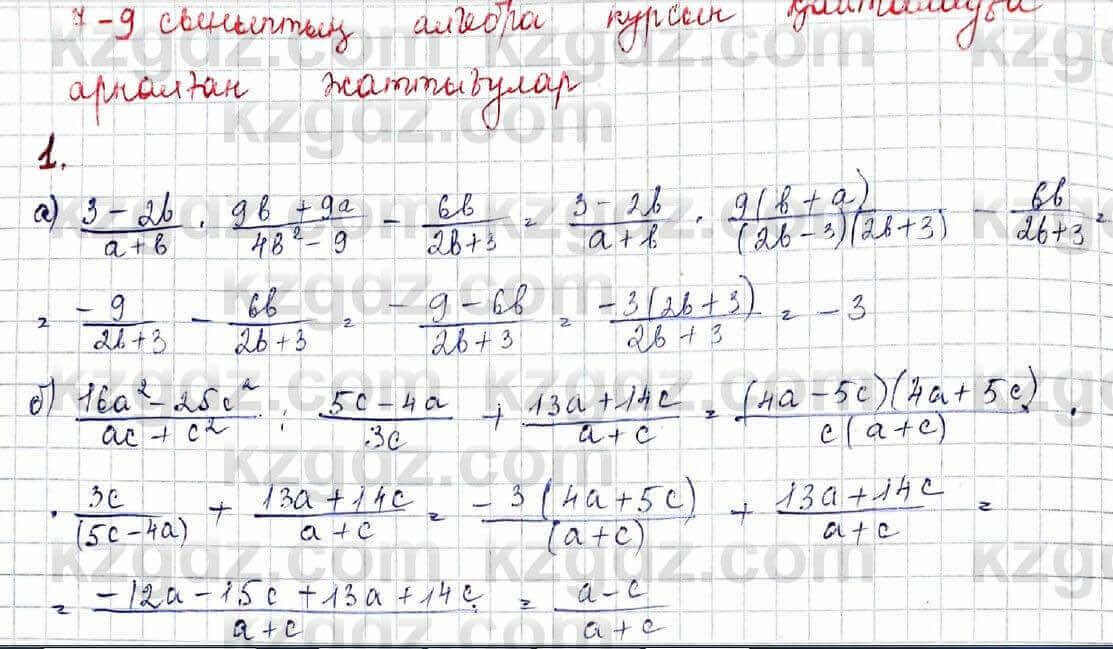 7-9 сыныптың алгебра курсын қайталауға
арналған жаттығулар
1.
а) (3-2b)/(a+b) · (9b+9a)/(4b²-9) - 6b/(2b+3) = (3-2b)/(a+b) · 9(b+a)/((2b-3)(2b+3)) - 6b/(2b+3) =
= -9/(2b+3) - 6b/(2b+3) = (-9-6b)/(2b+3) = -3(2b+3)/(2b+3) = -3
б) (16a²-25c²)/(ac+c²) : (5c-4a)/3c + (13a+14c)/(a+c) = (4a-5c)(4a+5c)/(c(a+c)) ·
· 3c/(5c-4a) + (13a+14c)/(a+c) = -3(4a+5c)/(a+c) + (13a+14c)/(a+c) =
= (-12a-15c+13a+14c)/(a+c) = (a-c)/(a+c)
kzgdz.com